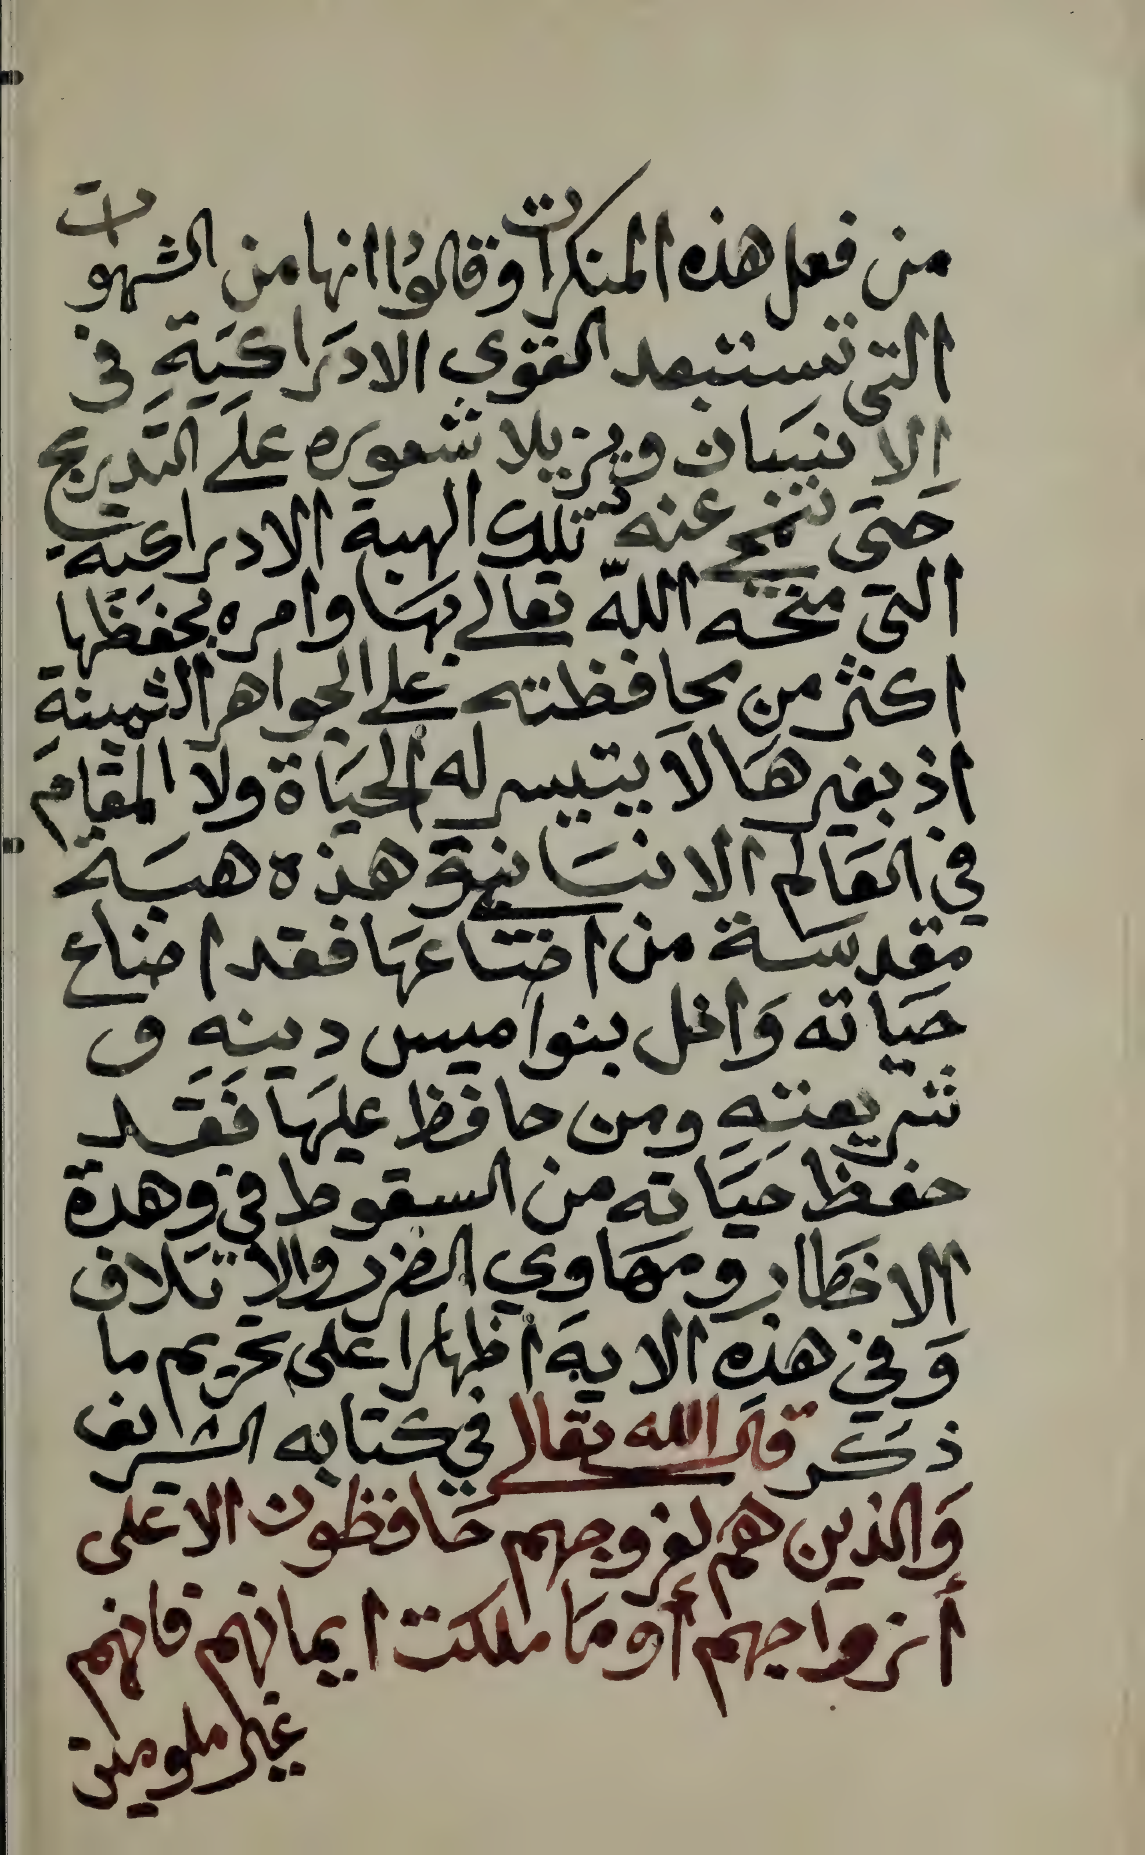 من فعل هذه المنكرات وقالوا انها من الشهوات
التى تستبعد القوى الادراكية فى
الانسان ويزيلا شعوره على التدريج
حتى تنمحى عنه تلك الهبة الادراكية
التى منحه الله تعالى بها وامره بحفظها
اكثر من محافظته على الجواهر الثمينة
اذ بغيرها لا يتيسر له الحياة ولا المقام
فى العالم الانسانية وهذه هبة
مقدسة من اضاعها فقد اضاع
حياته واخل بنواميس دينه و
شريعته ومن حافظ عليها فقد
حفظ حياته من السقوط فى وهدة
الاخطار ومهاوي الضرر والاتلاف
وفي هذه الاية اظهارا على تحريم ما
ذكر قال الله تعالى في كتابه الشريف
والذين هم لفروجهم حافظون الا على
أزواجهم أو ما ملكت ايمانهم فانهم
غير ملومين